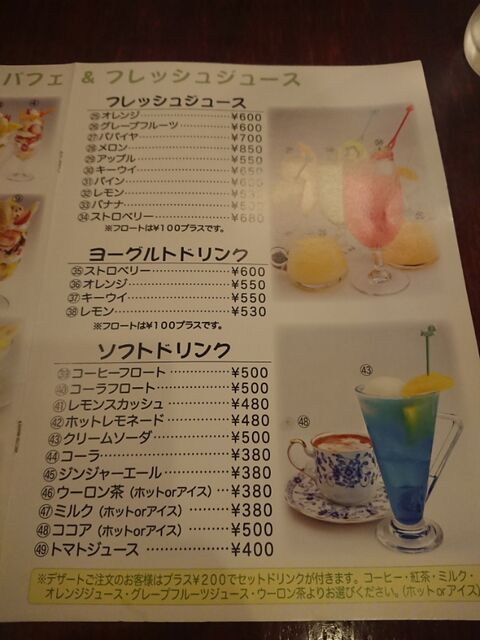 パフェ & フレッシュジュース
フレッシュジュース
㉕オレンジ……………………¥600
㉖グレープフルーツ……………¥600
㉗パパイヤ……………………¥700
㉘メロン………………………¥850
㉙アップル……………………¥550
㉚キーウイ……………………
㉛パイン………………………
㉜レモン………………………
㉝バナナ………………………
㉞ストロベリー………………¥680
※フロートは¥100プラスです。
ヨーグルトドリンク
㉟ストロベリー………………¥600
㊱オレンジ……………………¥550
㊲キーウイ……………………¥550
㊳レモン………………………¥530
※フロートは¥100プラスです。
ソフトドリンク
㊴コーヒーフロート…………¥500
㊵コーラフロート……………¥500
㊶レモンスカッシュ…………¥480
㊷ホットレモネード…………¥480
㊸クリームソーダ……………¥500
㊹コーラ………………………¥380
㊺ジンジャーエール…………¥380
㊻ウーロン茶（ホットorアイス）…¥380
㊼ミルク（ホットorアイス）……¥380
㊽ココア（ホットorアイス）……¥500
㊾トマトジュース……………¥400
㊸
㊽
※デザートご注文のお客様はプラス¥200でセットドリンクが付きます。コーヒー・紅茶・ミルク・
オレンジジュース・グレープフルーツジュース・ウーロン茶よりお選びください。(ホットorアイス)